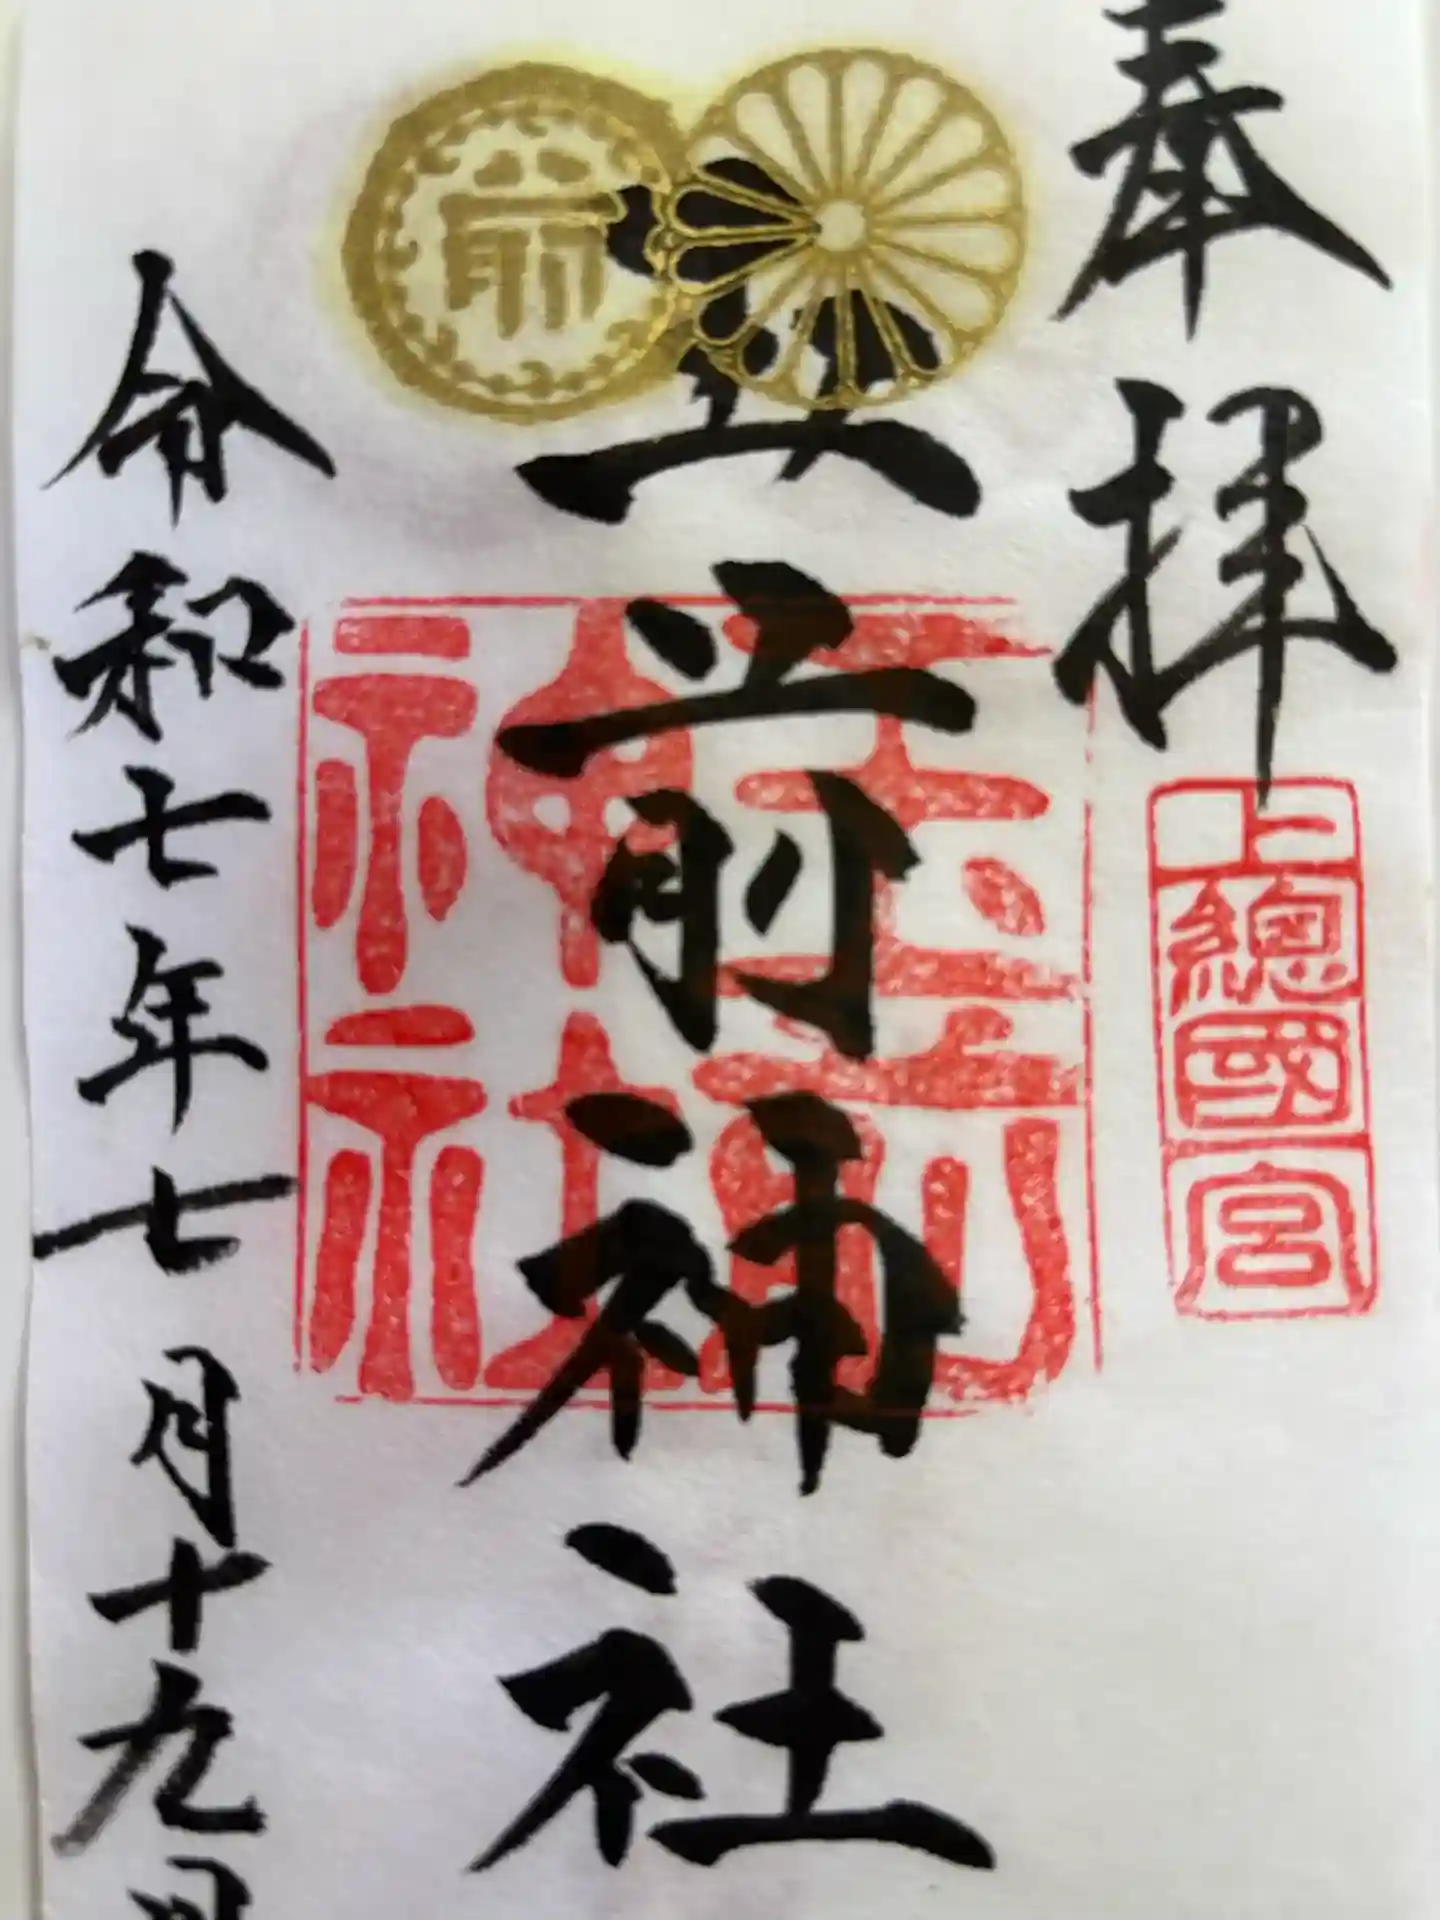 奉拝
上總國一宮
前
玉前神社
玉前
神社
令和七年七月十九日